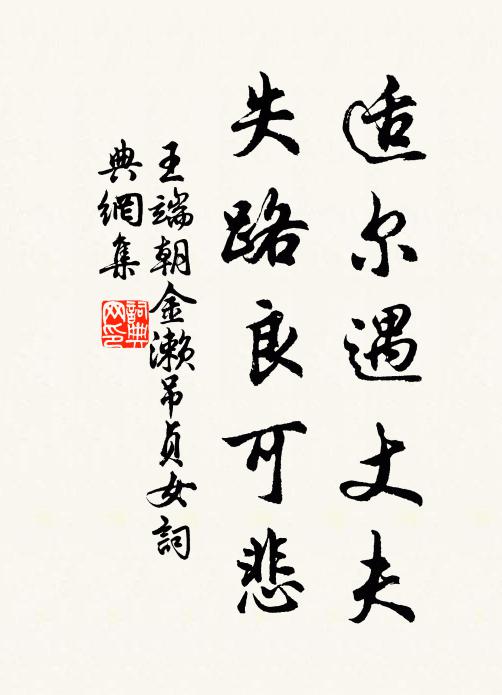 适尔遇丈夫
失路良可悲
王端朝金濑吊贞女詞
典網集
詞典网印